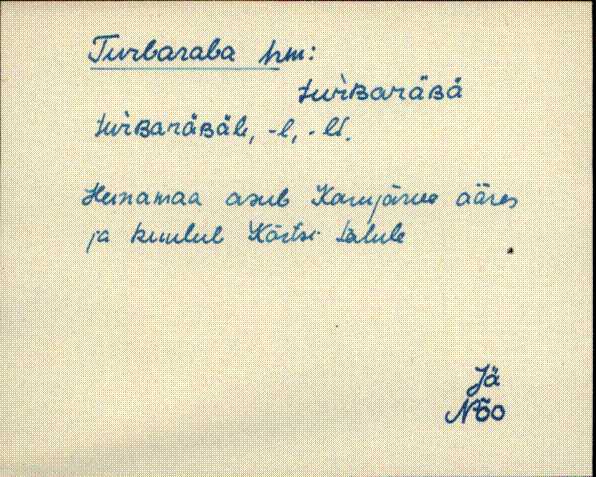 Turbaraba hm:
turʙaràʙà
turʙaràʙàlɛ, -l, -lt.
Heinamaa asub Karujärve ääres
ja kuulub Kõrtsi talule
Jä
Nõo